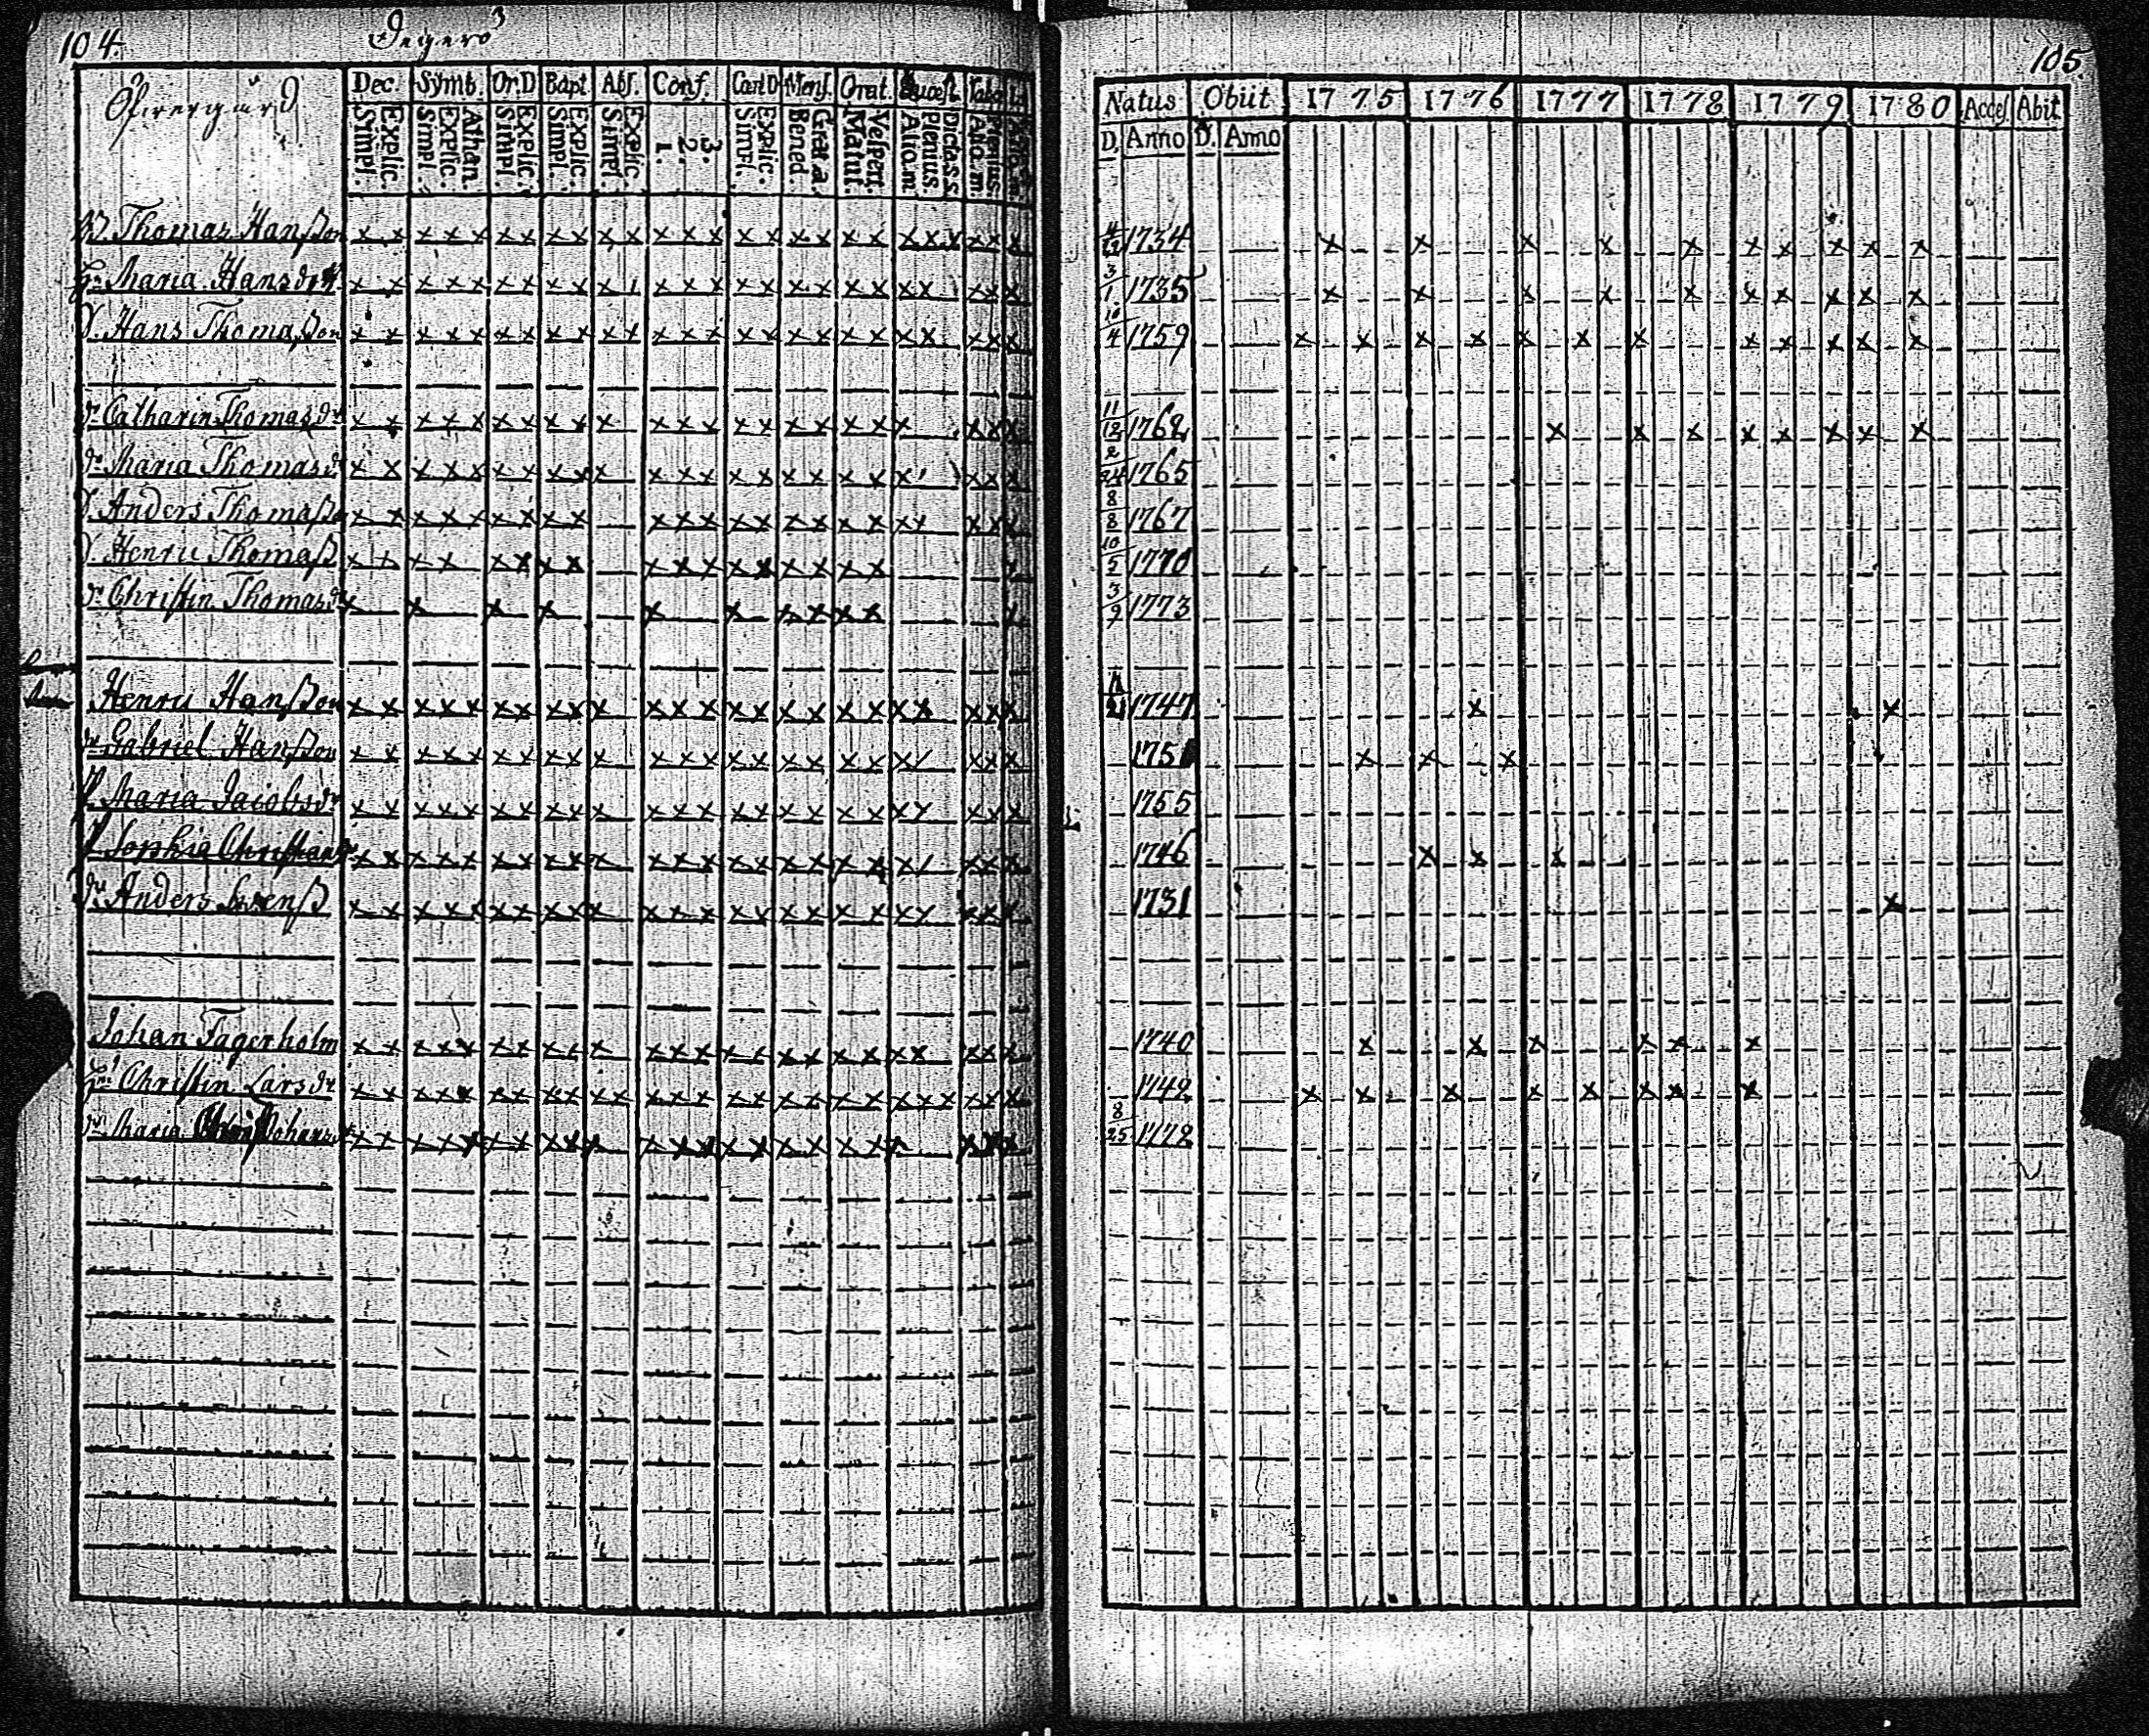 104
Degerö
105
Öfwergård
Dec. Symb. Or.D Bapt. Abs. Conf. Cœn D Mens. Orat. Quæst. Tabu
Simpl. Explic. Simpl. Explic. Athan. Simpl. Explic. Simpl. Explic. Simpl. Explic. 1. 2. 3. Simpl. Explic. Bened. Grat.a. Matut. Vespert. Aliom Plenius Dictass Aliom Plenius
Natus Obiit 1775 1776 1777 1778 1779 1780 Acces. Abit
D. Anno D. Anno
Thomas Hanßon 4/12 1734
Maria Hansdotr 3/1 1735
S. Hans Thomaßon 10/4 1759
dr Catharin Thomasdr 11/12 1762
dr Maria Thomasd 2/24 1765
S. Anders Thomaßo 8/8 1767
S. Henric Thomaß 10/5 1770
dr Christin Thomasd 3/9 1773
Henric Hanßon 1747
dr Gabriel Hanßon 1751
P. Maria Jacobsdr 1755
P. Sophia Christiansdr 1746
dr Anders Swenß 1731
Johan Fagerholm 1740
Christin Larsdr 1742
dr Maria Johansdr 8/25 1772